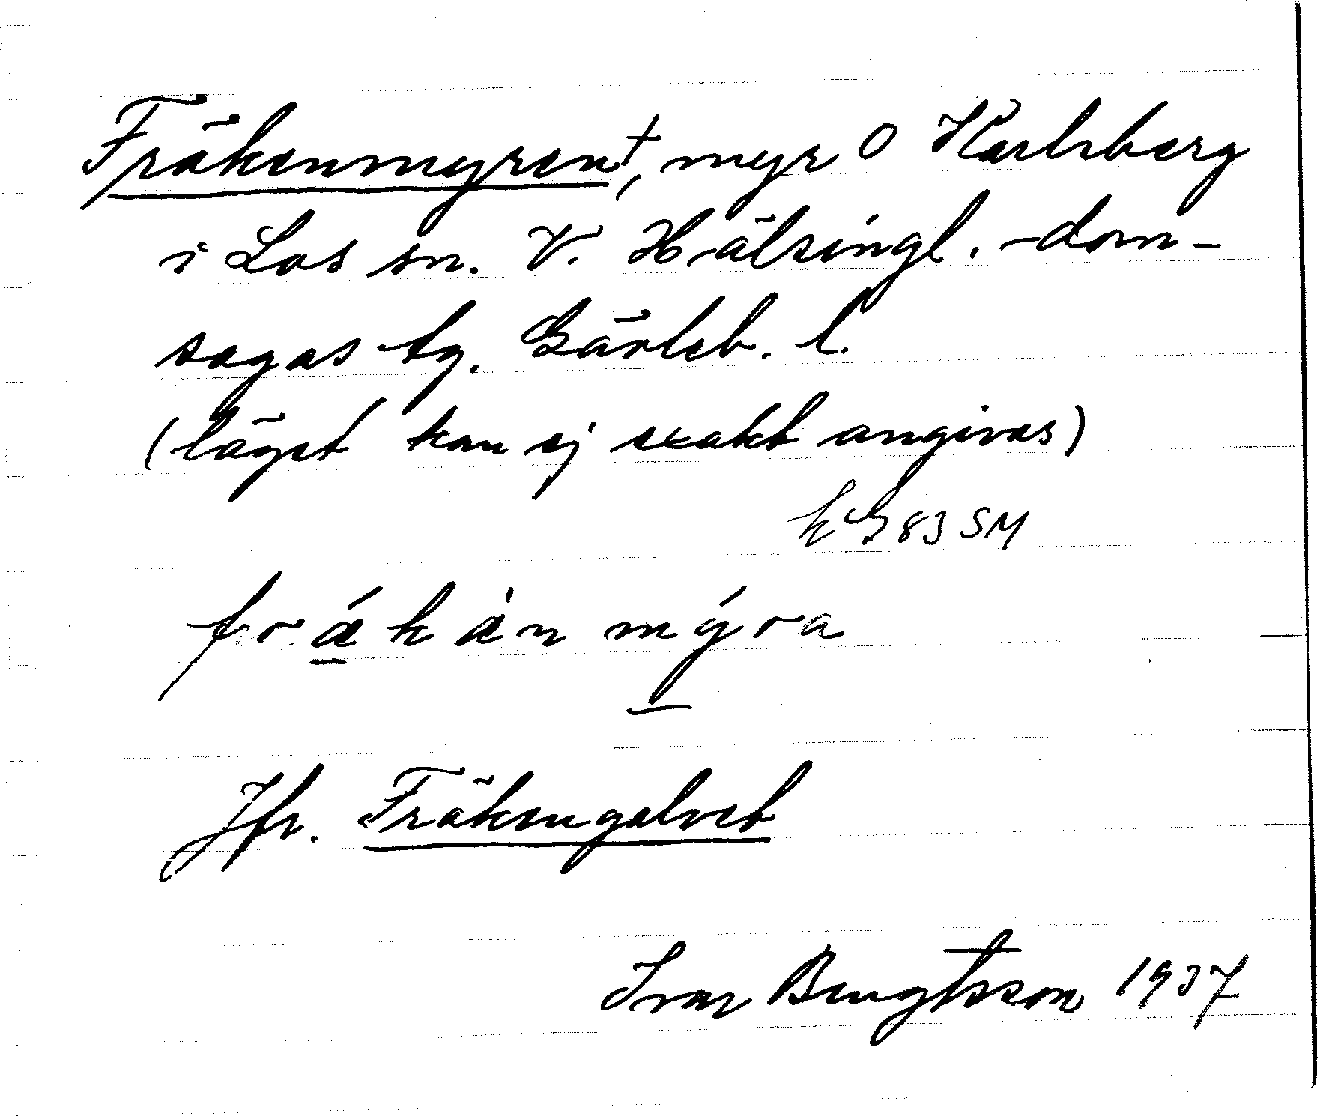 Fräkenmyren†, myr O Karlsberg
i Los sn. V. Hälsingl. -dom-
sagas tg. Gävleb. l.
(läget kan ej exakt angivas)
k G83 SM
frǻkȧn mýra
Jfr. Fräkengalvet
Ivar Bengtsson 1937